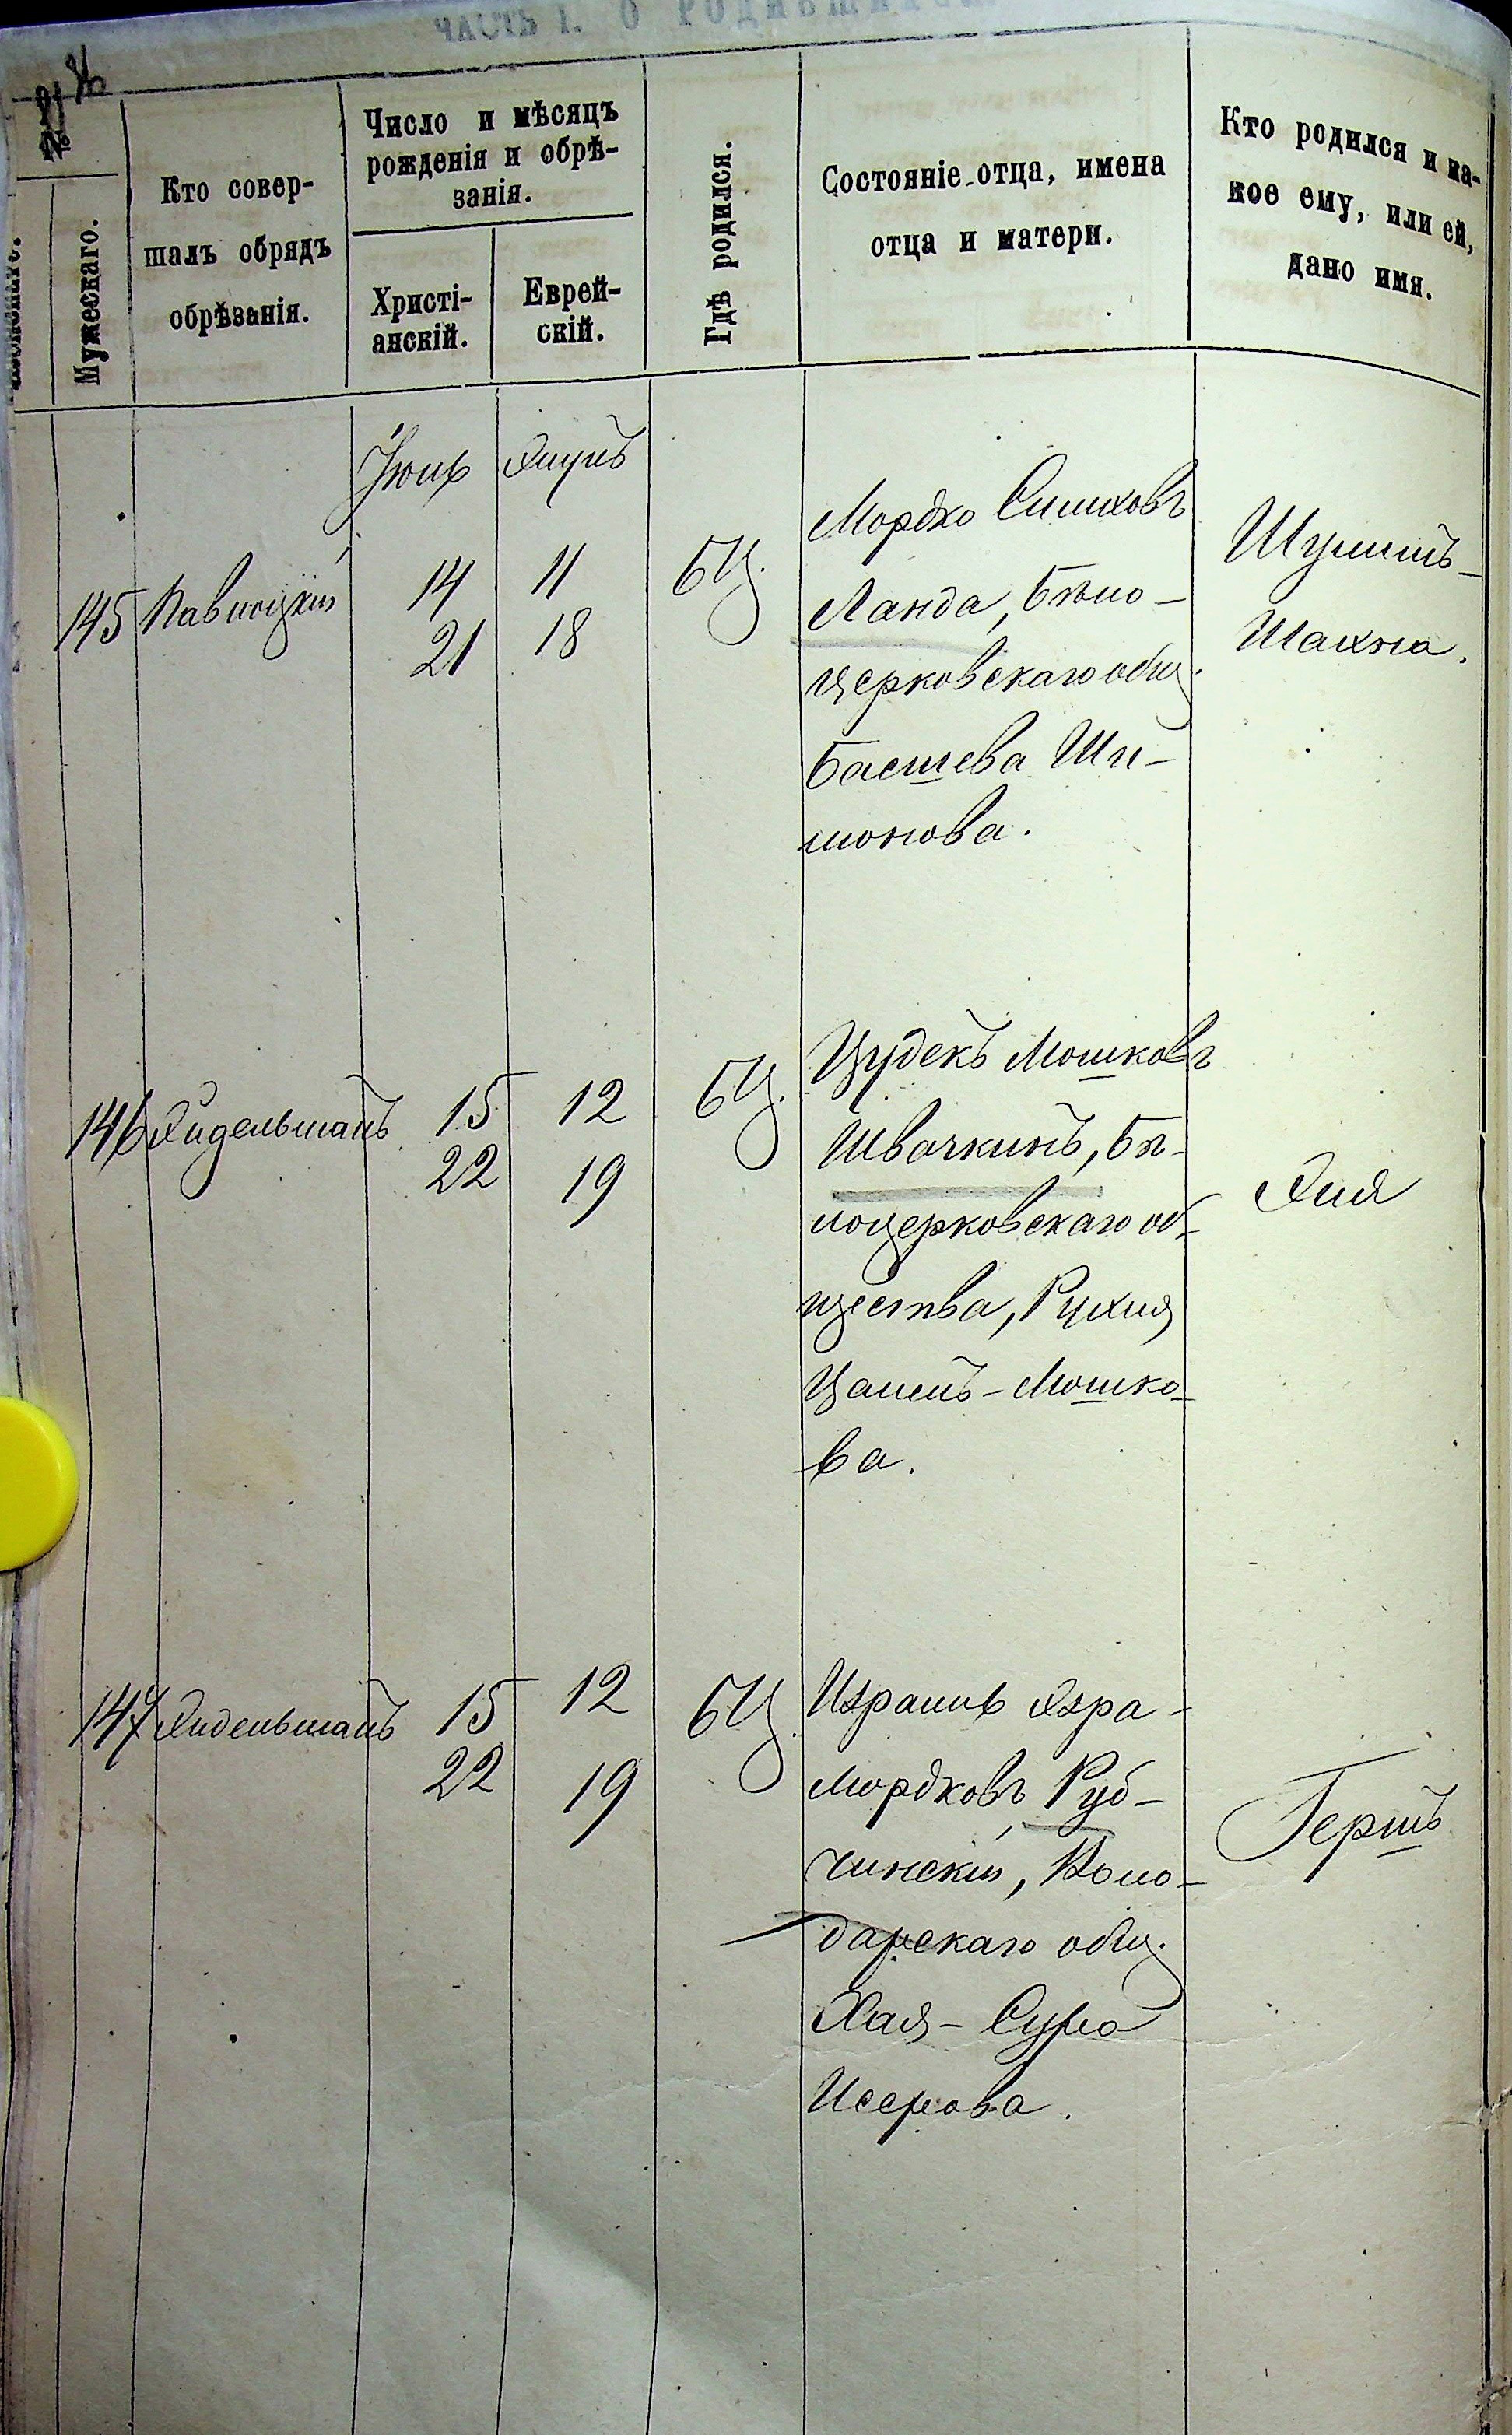 ЧАСТЬ I. О РОДИВШИХСЯ
Женскаго.
Мужескаго.
Кто совер-
шалъ обрядъ
обрѣзанія.
Число и мѣсяцъ
рожденія и обрѣ-
занія.
Христі-
анскій.
Еврей-
скій.
Гдѣ родился.
Состояніе отца, имена
отца и матери.
Кто родился и ка-
кое ему, или ей,
дано имя.
Іюнь
145
14
21
11
18
БЦ.
Мордко
Ланда, Бѣло-
церковскаго общ.
Басшева Ши-
монова.
Шулимъ-
Шахна.
146 Айдельманъ
15
22
12
19
БЦ.
Цудекъ Мошковъ
Швачкинъ, Бѣ-
лоцерковскаго об-
щества, Рухля
Мошко-
ва.
147 Айдельманъ
15
22
12
19
БЦ.
Израиль Азра-
Мордковъ Руб-
чинскій, Воло-
дарскаго общ.
Хая-Сура
Исерова.
Гершъ